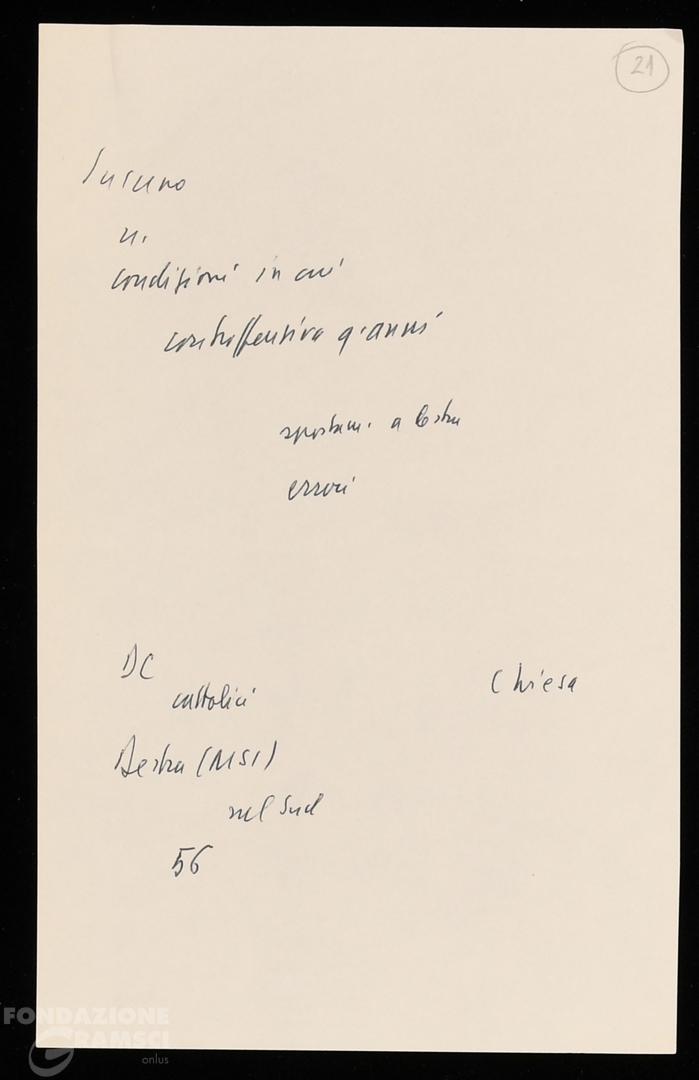 21
n.
condizioni in cui
controffensiva q. anni
spostam. a destra
errori
DC
cattolici Chiesa
Destra (MSI)
nel Sud
56
FONDAZIONE
GRAMSCI
onlus